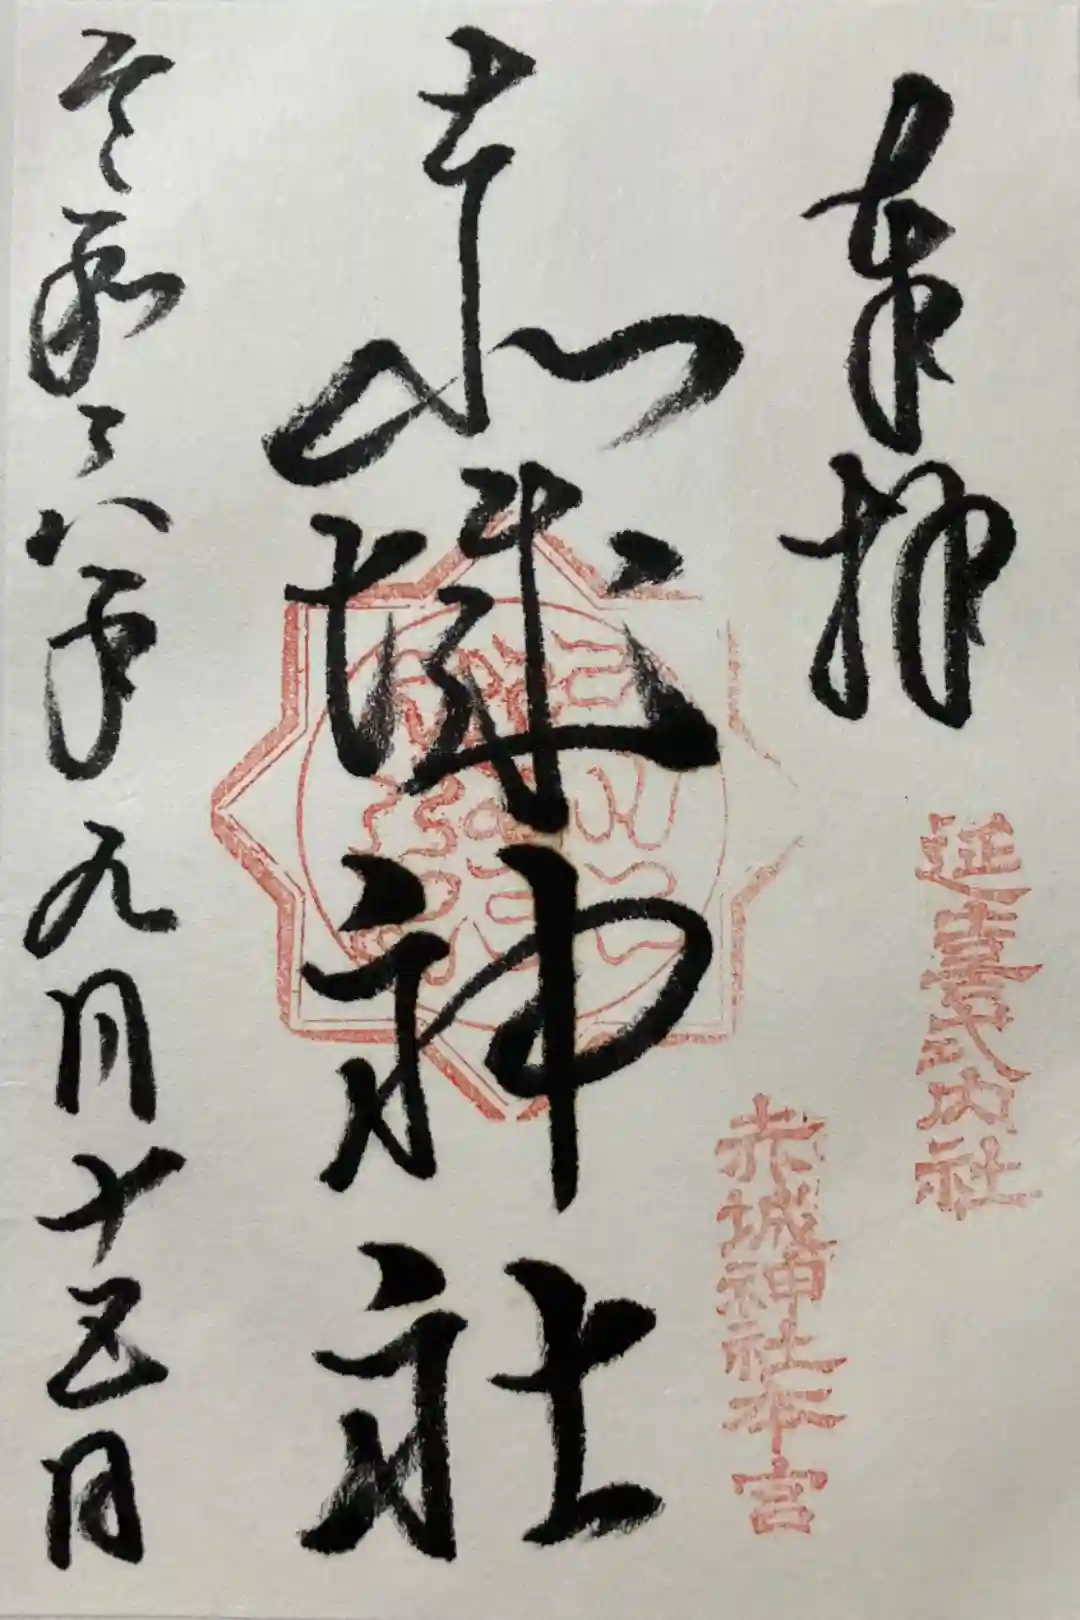 奉拝
延喜式内社
赤城神社本宮
赤城神社
八年九月十五日